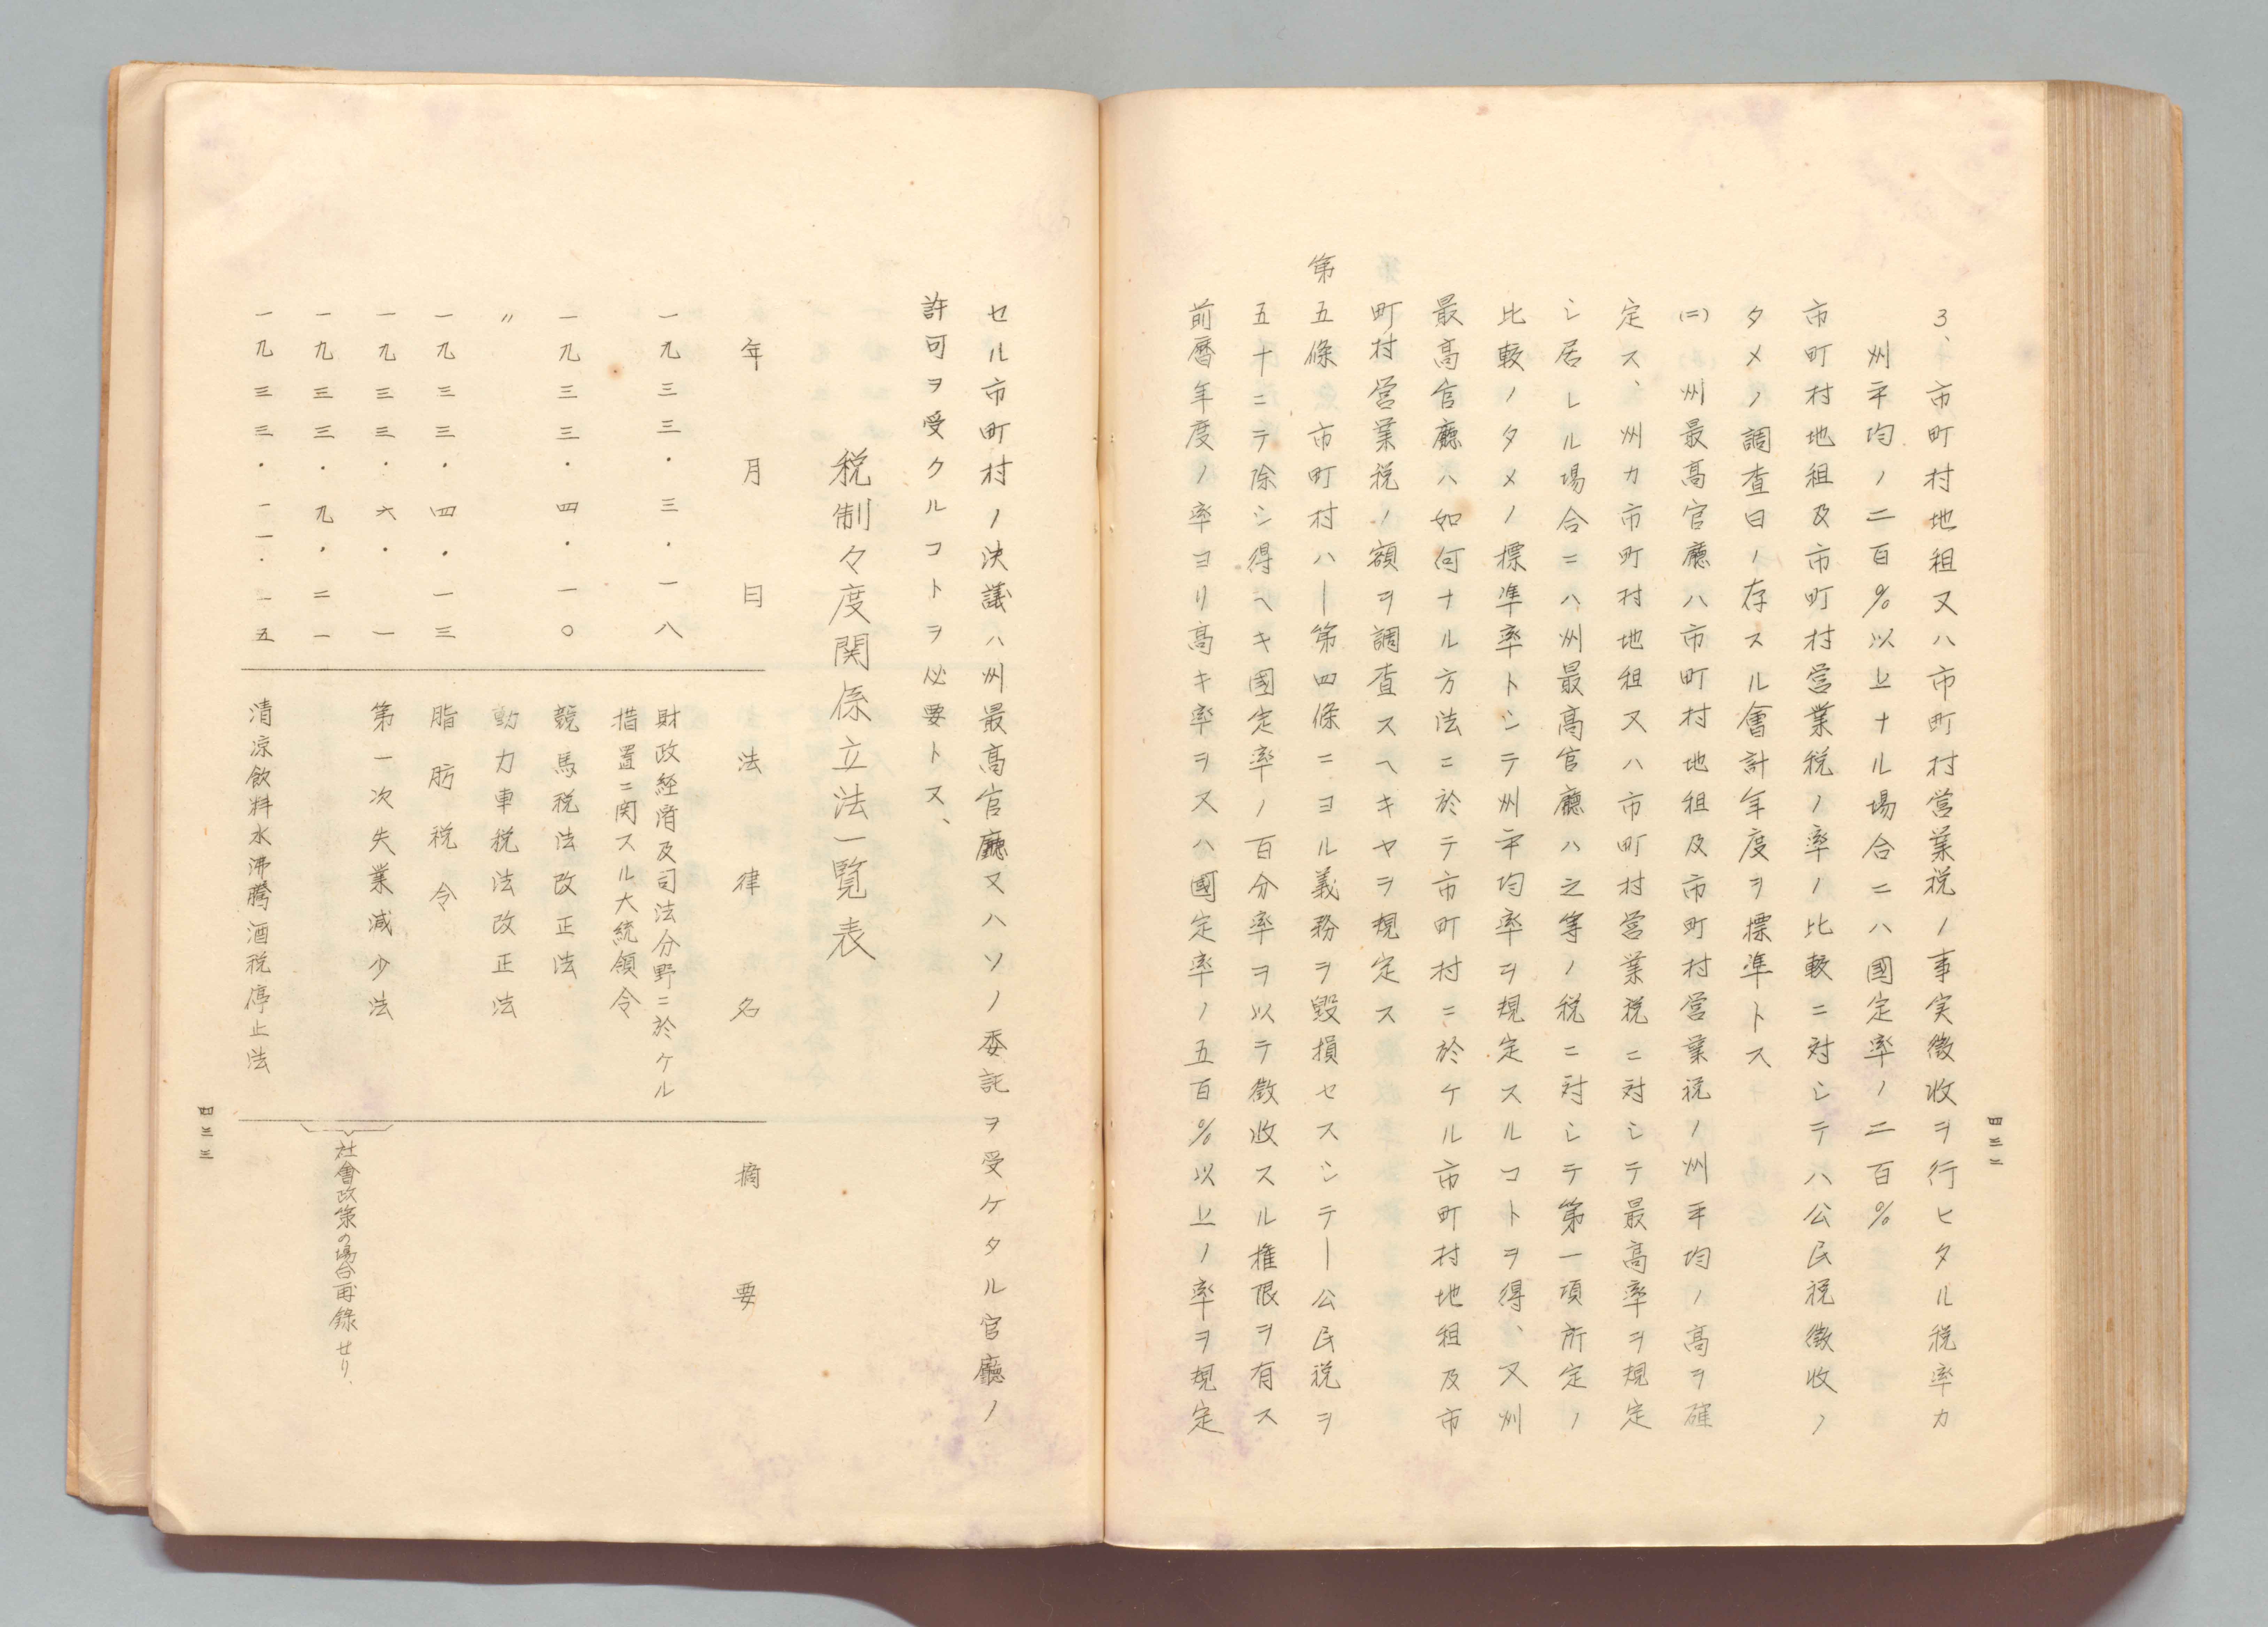 3、市町村地租又ハ市町村営業税ノ事実徴收ヲ行ヒタル税率カ
州平均ノ二百％以上ナル場合ニハ國定率ノ二百％
市町村地祖及市町村営業税ノ率ノ比較ニ対シテハ公民税徴收ノ
タメノ調査日ノ存スル會計年度ヲ標準トス
(ニ)州最高官廳ハ市町村地租及市町村営業税ノ州平均ノ高ヲ確
定ス、州カ市町村地祖又ハ市町村営業税ニ対シテ最高率ヲ規定
シ居レル場合ニハ州最高官廳ハ之等ノ税ニ対シテ第一項所定ノ
比較ノタメノ標準率トシテ州平均率ヲ規定スルコトヲ得、又州
最高官廳ハ如何ナル方法ニ於テ市町村ニ於ケル市町村地租及市
町村営業税ノ額ヲ調査スヘキヤヲ規定ス
第五條　市町村ハ―第四條ニヨル義務ヲ毀損セスシテ―公民税ヲ
五十ニテ除シ得ヘキ國定率ノ百分率ヲ以テ徴收スル権限ヲ有ス
前暦年度ノ率ヨリ高キ率ヲ又ハ國定率ノ五百％以上ノ率ヲ規定
四三二
セル市町村ノ決議ハ州最高官廳又ハソノ委託ヲ受ケタル官廳ノ
許可ヲ受クルコトヲ必要トス、
税制々度関係立法一覧表
年月日　法律名　摘要
一九三三・三・一八　財政経済及司法分野ニ於ケル
措置ニ関スル大統領令
一九三三・四・一〇　競馬税法改正法
〃　動力車税法改正法
一九三三・四・一三　脂肪税令
一九三三・六・一　第一次失業減少法
一九三三・九・二一
社會政策の場合再錄せり.
一九三三・一一・一五　清凉飲料水沸騰酒税停止法
四三三